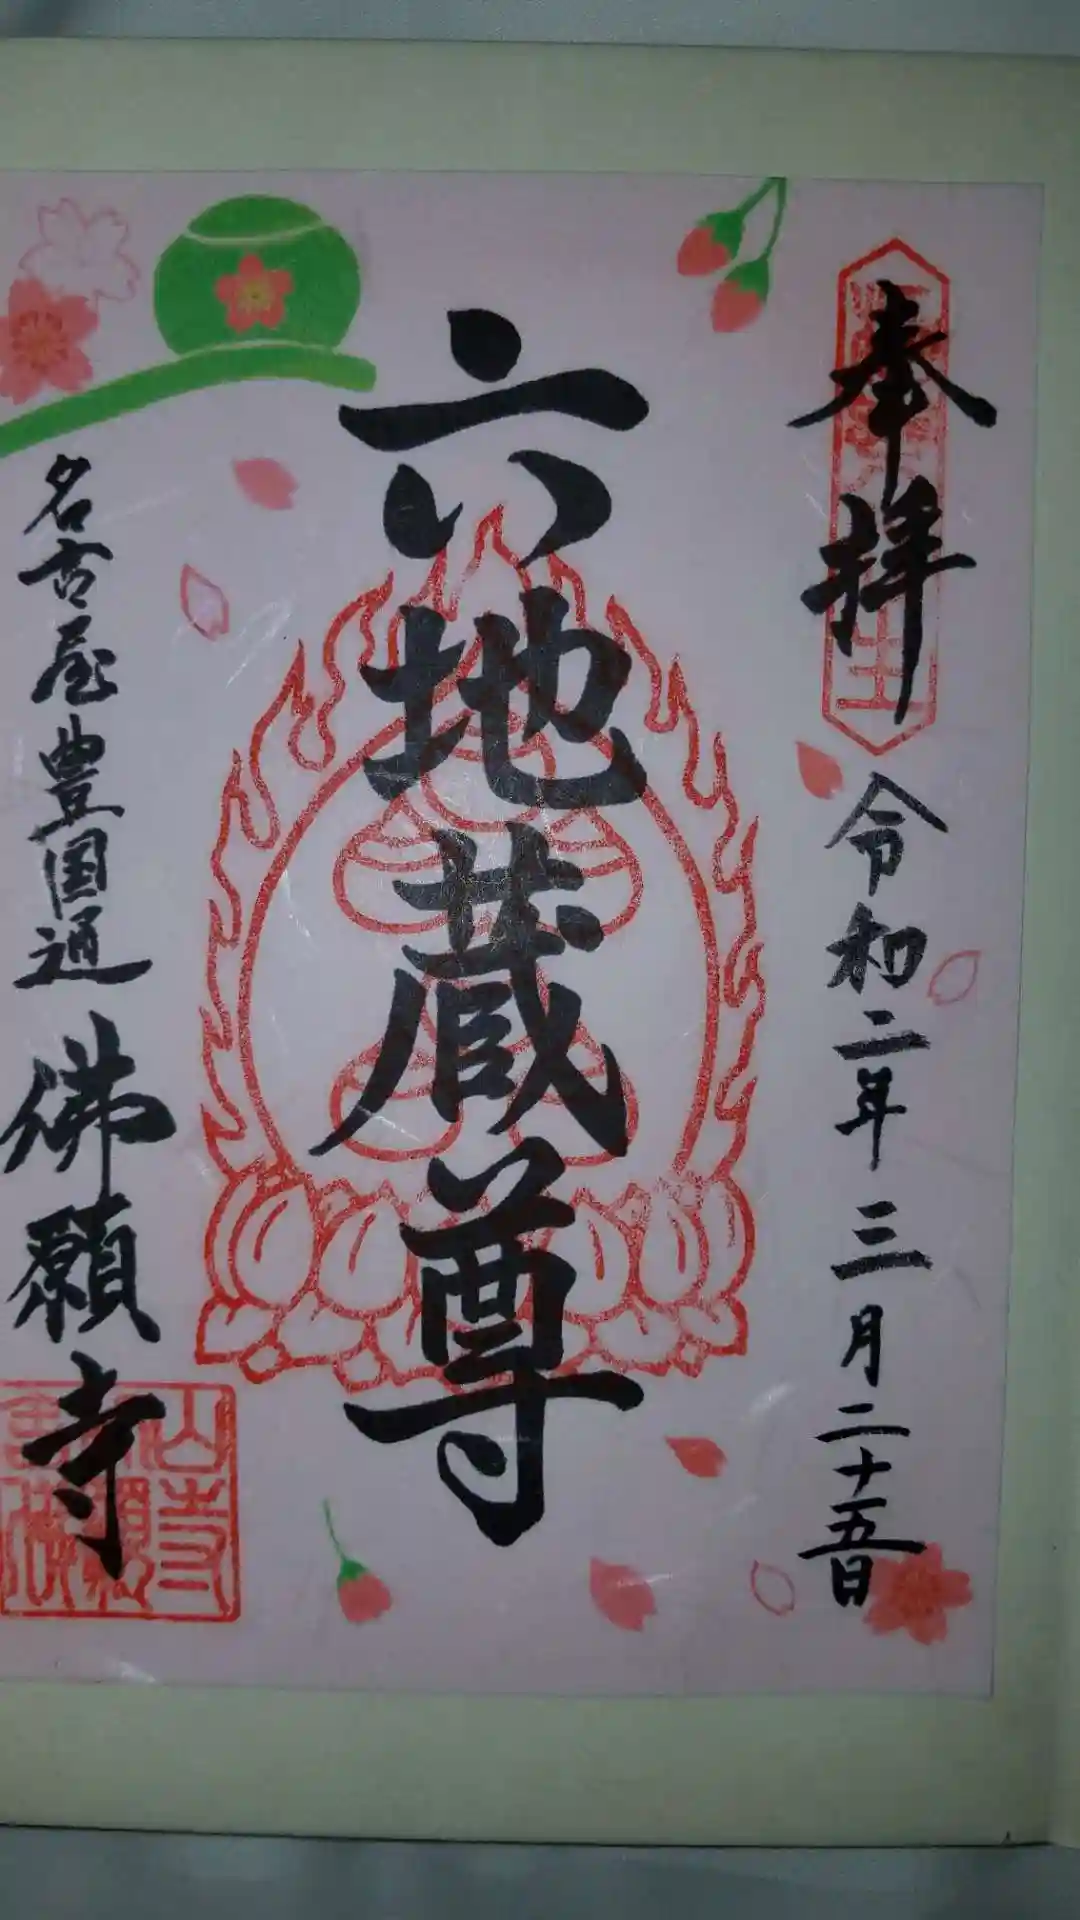 奉拝
令和二年三月二十五日
六地蔵尊
名古屋豊国通
佛願寺